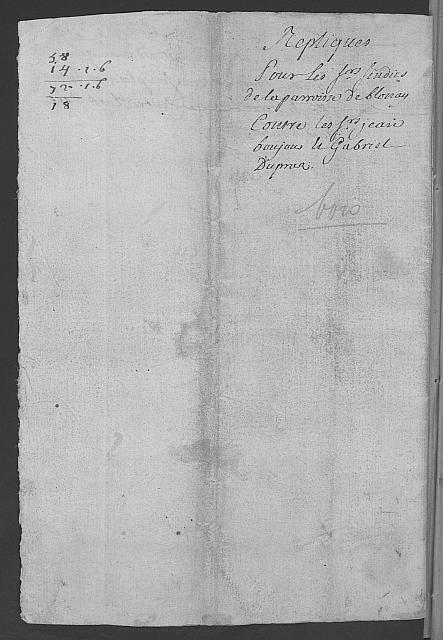 58
14 - 1 - 6
72 - 1 - 6
18
Repliques
Pour les srs sindics
de la parroisse de blonay
Contre les srs jean
bonjour & Gabriel
Dupraz.